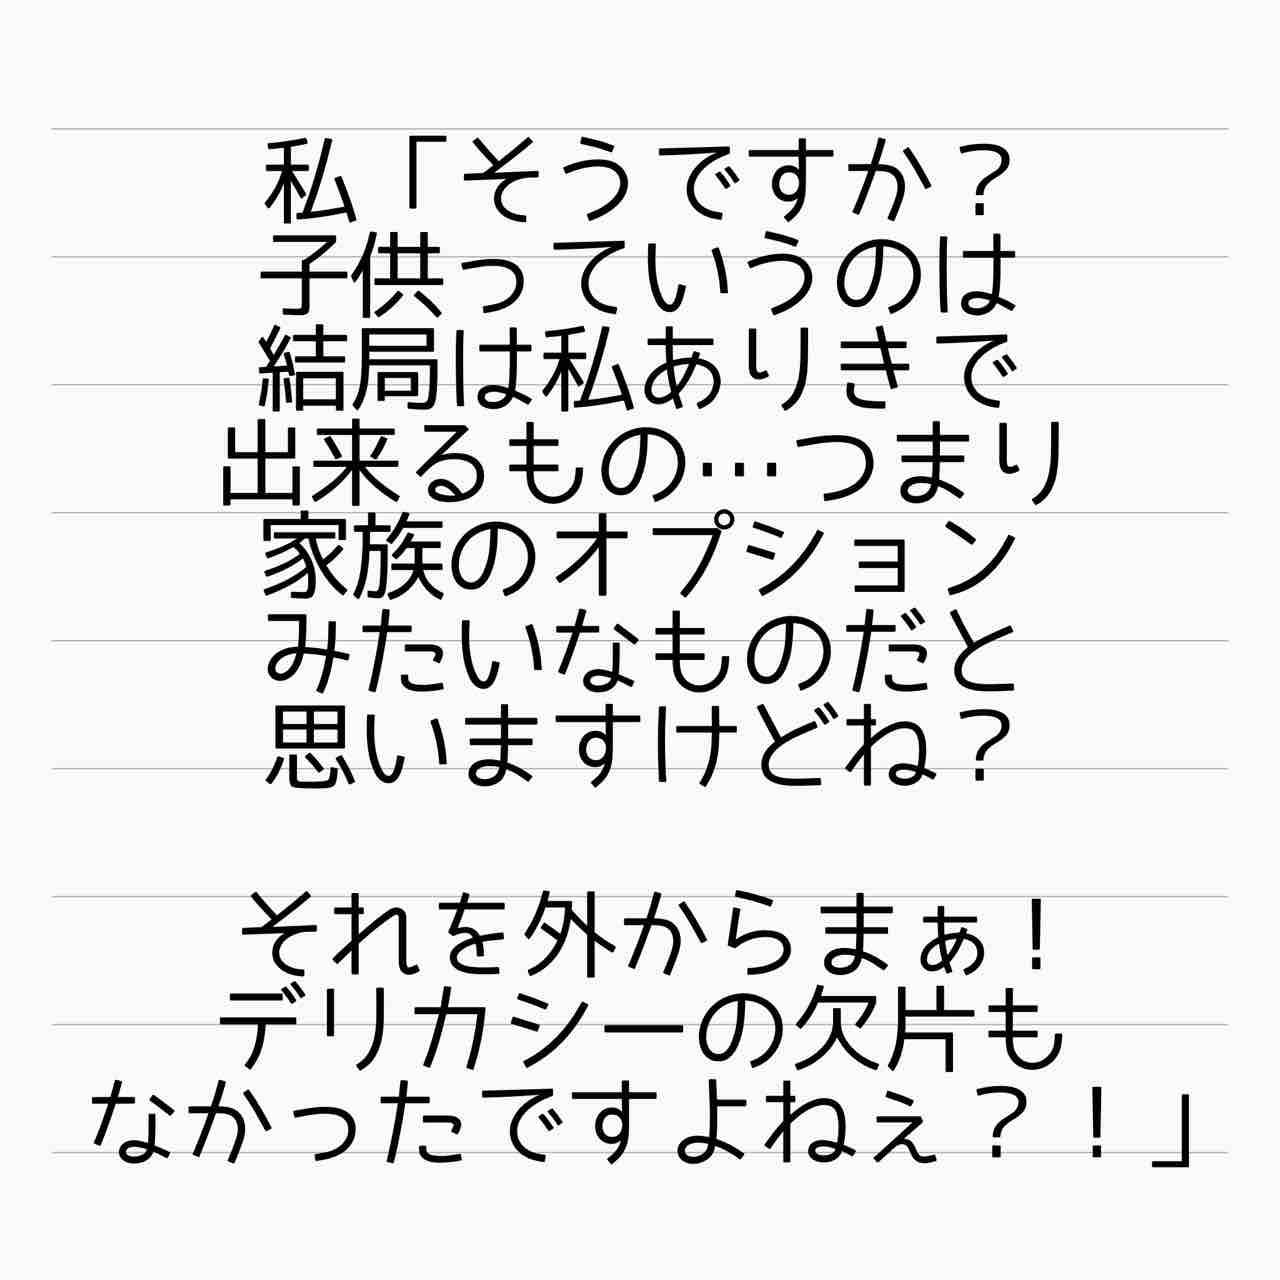 私「そうですか？
子供っていうのは
結局は私ありきで
出来るもの…つまり
家族のオプション
みたいなものだと
思いますけどね？
それを外からまぁ！
デリカシーの欠片も
なかったですよねぇ？！」